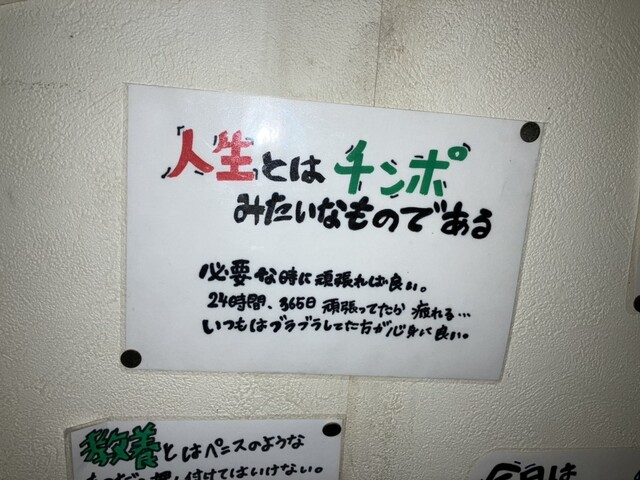 人生とはチンポ
みたいなものである
必要な時に頑張れば良い。
24時間、365日 頑張ってたら 疲れる…
いつもはブラブラしてた方が心身に良い。
教養とはペニスのような
付けてはいけない。
今日は